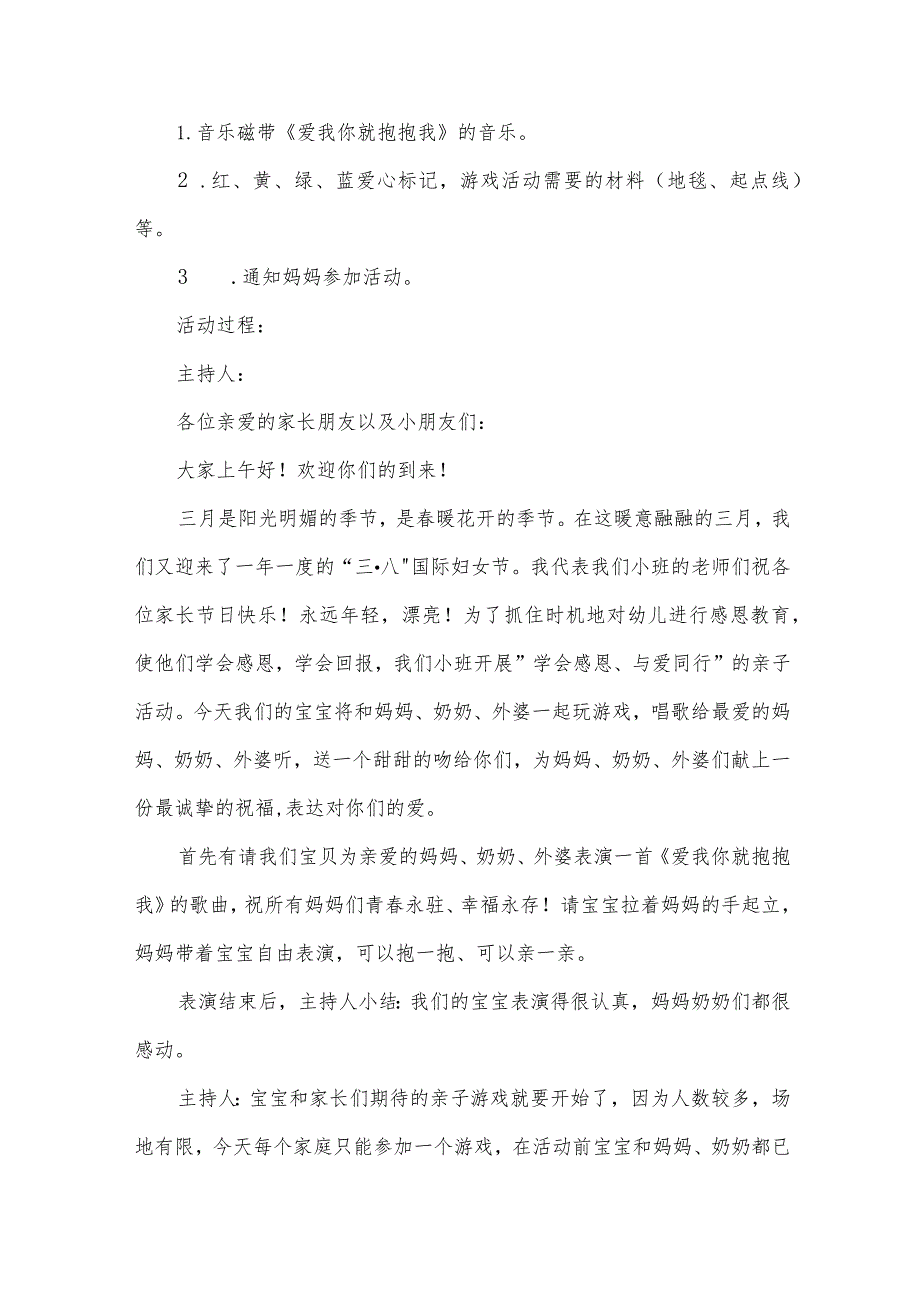 1.音乐磁带《爱我你就抱抱我》的音乐。
2 .红、黄、绿、蓝爱心标记，游戏活动需要的材料（地毯、起点线）
等。
3 .通知妈妈参加活动。
活动过程：
主持人：
各位亲爱的家长朋友以及小朋友们：
大家上午好！欢迎你们的到来！
三月是阳光明媚的季节，是春暖花开的季节。在这暖意融融的三月，我
们又迎来了一年一度的“三•八"国际妇女节。我代表我们小班的老师们祝各
位家长节日快乐！永远年轻，漂亮！为了抓住时机地对幼儿进行感恩教育，
使他们学会感恩，学会回报，我们小班开展”学会感恩、与爱同行”的亲子
活动。今天我们的宝宝将和妈妈、奶奶、外婆一起玩游戏，唱歌给最爱的妈
妈、奶奶、外婆听，送一个甜甜的吻给你们，为妈妈、奶奶、外婆们献上一
份最诚挚的祝福,表达对你们的爱。
首先有请我们宝贝为亲爱的妈妈、奶奶、外婆表演一首《爱我你就抱抱
我》的歌曲，祝所有妈妈们青春永驻、幸福永存！请宝宝拉着妈妈的手起立，
妈妈带着宝宝自由表演，可以抱一抱、可以亲一亲。
表演结束后，主持人小结：我们的宝宝表演得很认真，妈妈奶奶们都很
感动。
主持人：宝宝和家长们期待的亲子游戏就要开始了，因为人数较多，场
地有限，今天每个家庭只能参加一个游戏，在活动前宝宝和妈妈、奶奶都已